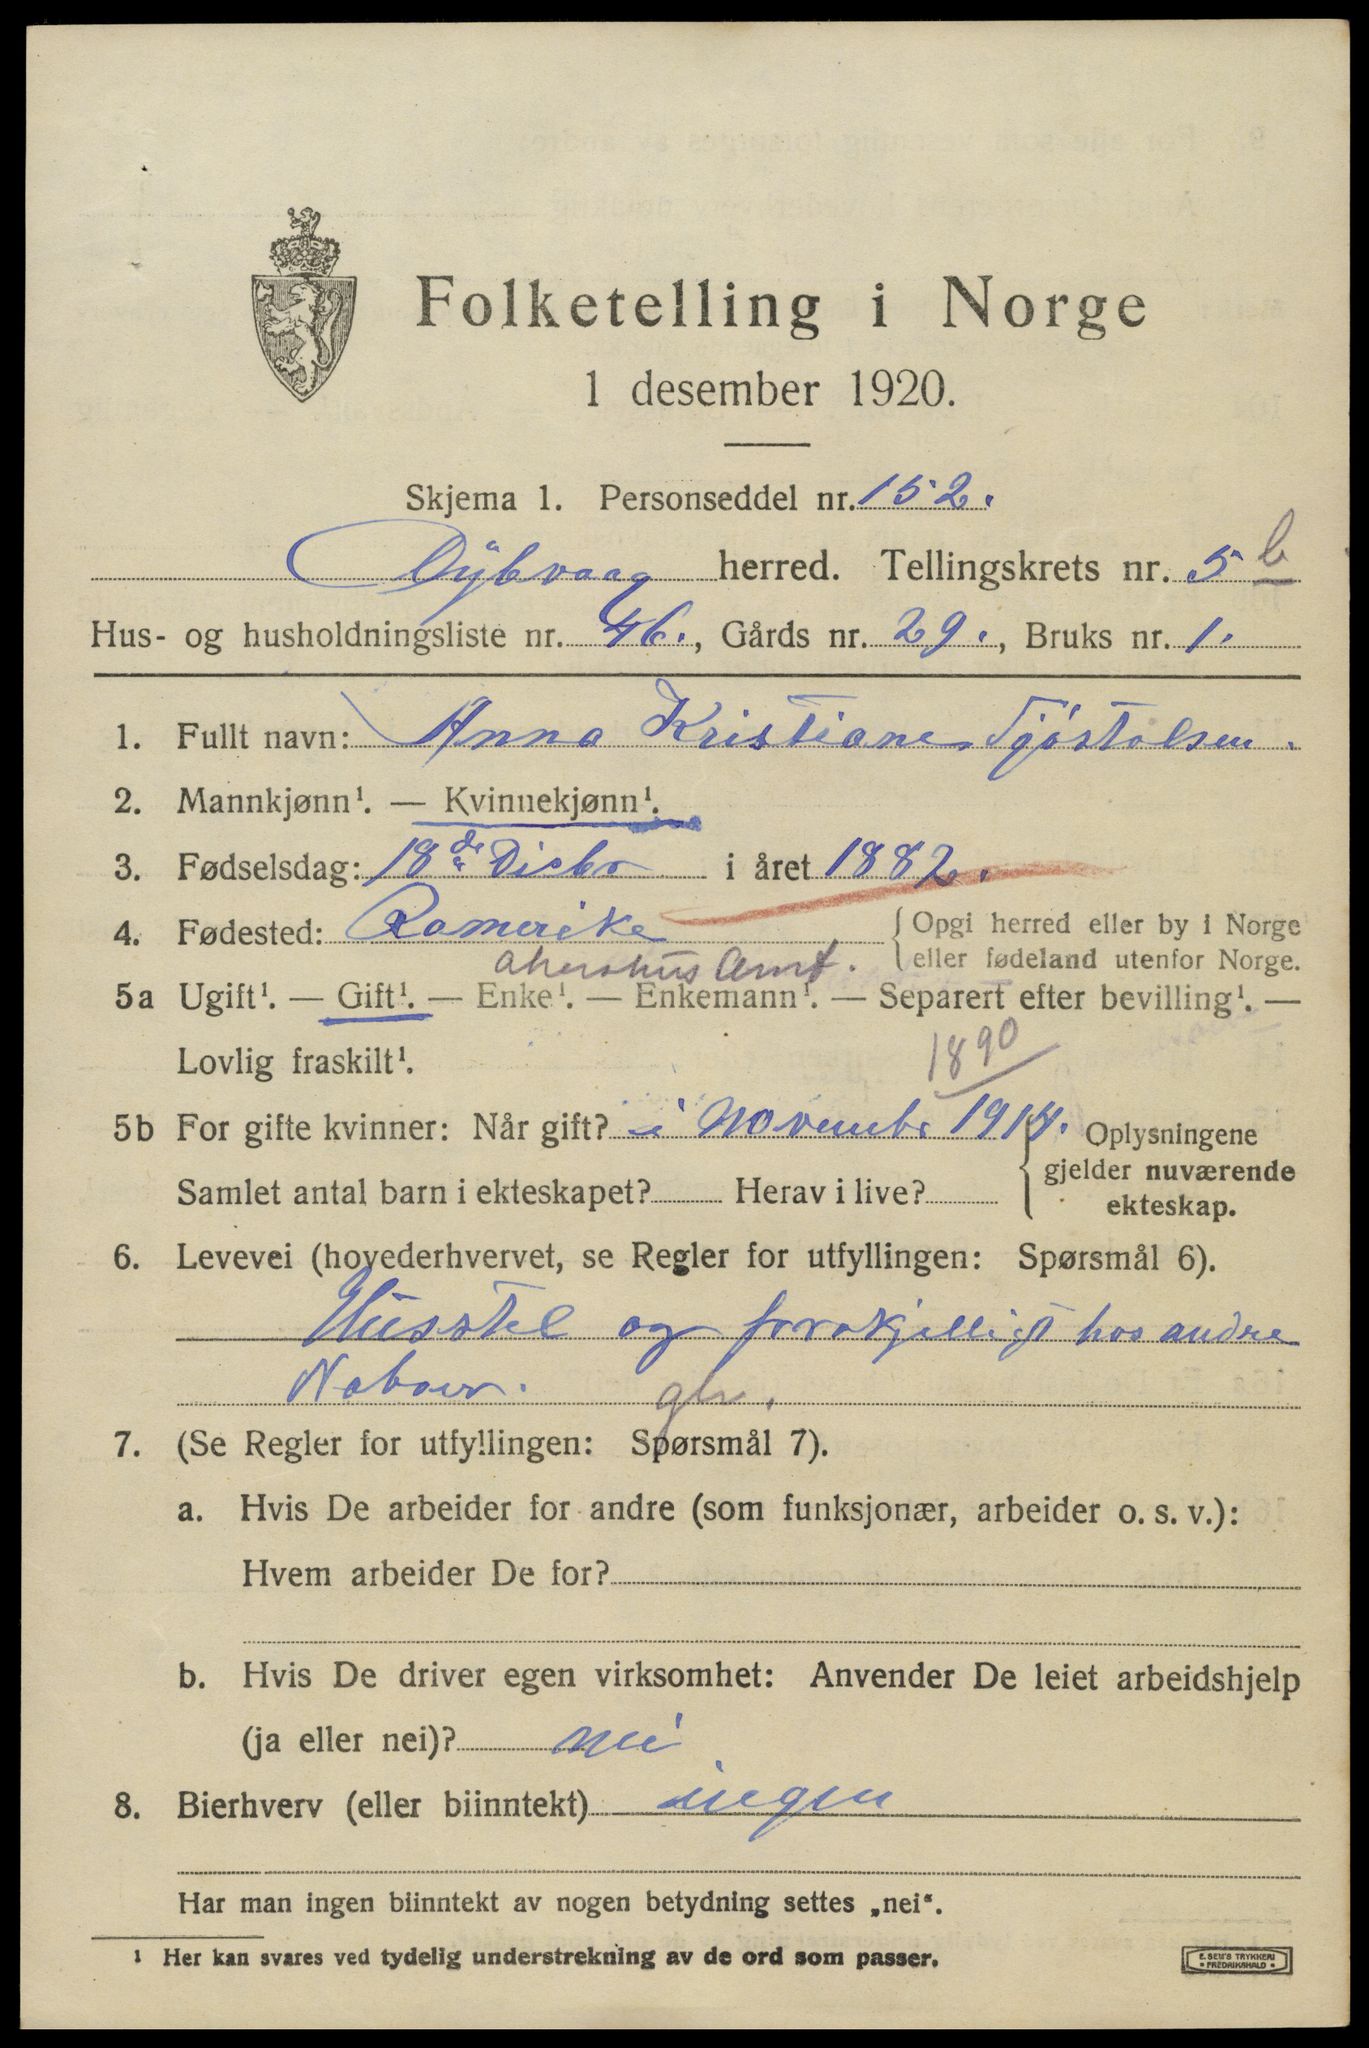 Folketelling i Norge
1 desember 1920.
Skjema 1. Personseddel nr. 152.
Dybvaag herred. Tellingskrets nr. 5 b
Hus- og husholdningsliste nr. 46., Gårds nr. 29., Bruks nr. 1.
1. Fullt navn: Anna Kristiane Tjöstolsen.
2. Mannkjønn¹. — Kvinnekjønn¹.
3. Fødselsdag: 18de Desbr i året 1882.
4. Fødested: Romerike { Opgi herred eller by i Norge
Akershus Amt. eller fødeland utenfor Norge.
5a Ugift¹. — Gift¹. — Enke¹. — Enkemann¹. — Separert efter bevilling¹. —
Lovlig fraskilt¹.
1890
5b For gifte kvinner: Når gift? i Novembr 1914. { Oplysningene
gjelder nuværende
Samlet antal barn i ekteskapet? Herav i live?
ekteskap.
6. Levevei (hovederhvervet, se Regler for utfyllingen: Spørsmål 6).
Husstel og forskjelligt hos andre
Naboer.
7. (Se Regler for utfyllingen: Spørsmål 7).
a. Hvis De arbeider for andre (som funksjonær, arbeider o. s. v.):
Hvem arbeider De for?
b. Hvis De driver egen virksomhet: Anvender De leiet arbeidshjelp
(ja eller nei)? nei
8. Bierhverv (eller biinntekt) ingen
Har man ingen biinntekt av nogen betydning settes „nei“.
¹ Her kan svares ved tydelig understrekning av de ord som passer.
E. SEM'S TRYKKERI
• FREDRIKSHALD •